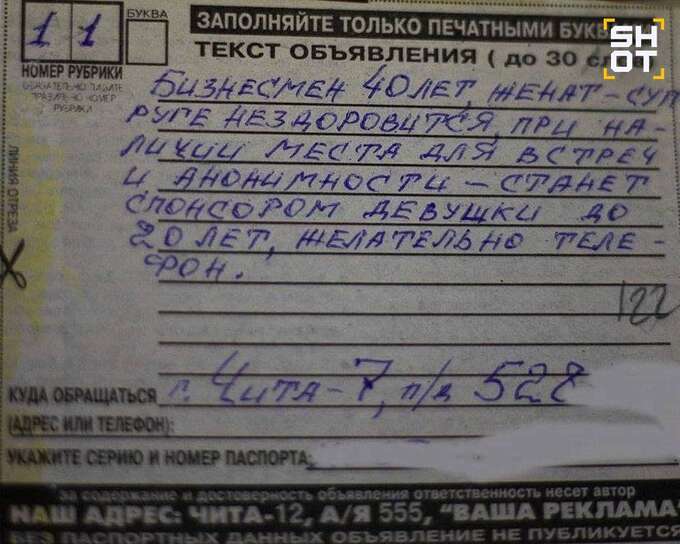 11
БУКВА
ЗАПОЛНЯЙТЕ ТОЛЬКО ПЕЧАТНЫМИ
SHOT
НОМЕР РУБРИКИ
ТЕКСТ ОБЪЯВЛЕНИЯ ( до 30
ЛИНИЯ ОТРЕЗА
БИЗНЕСМЕН 40 ЛЕТ, ЖЕНАТ – СУП
РУГЕ НЕЗДОРОВИТСЯ, ПРИ НА-
ЛИЧИИ МЕСТА ДЛЯ ВСТРЕЧ
И АНОНИМНОСТИ – СТАНЕТ
СПОНСОРОМ ДЕВУШКИ ДО
20 ЛЕТ, ЖЕЛАТЕЛЬНО ТЕЛЕ-
ФОН.
122
КУДА ОБРАЩАТЬСЯ г. Чита-7, п/я 528
(АДРЕС ИЛИ ТЕЛЕФОН):
УКАЖИТЕ СЕРИЮ И НОМЕР ПАСПОРТА:
за содержание и достоверность объявления ответственность несет автор
НАШ АДРЕС: ЧИТА-12, А/Я 555, "ВАША РЕКЛАМА"
БЕЗ ПАСПОРТНЫХ ДАННЫХ ОБЪЯВЛЕНИЕ НЕ ПУБЛИКУЕТСЯ